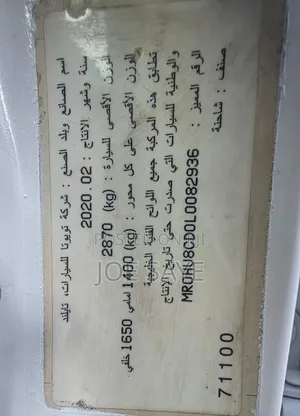 اسم الصانع وبلد الصنع : شركة تويوتا للسيارات، تايلاند
سنة وشهر الانتاج : 2020.02
الوزن الأقصى للسيارة : (kg) 2870
الوزن الأقصى على كل محور : (kg) 1400 امامي 1650 خلفي
تطابق هذه المركبة جميع اللوائح الفنية الخليجية
والوطنية للسيارات التي صدرت حتى تاريخ الإنتاج
الرقم المميز : MR0HU8CD0L0082936
صنف : شاحنة
71100